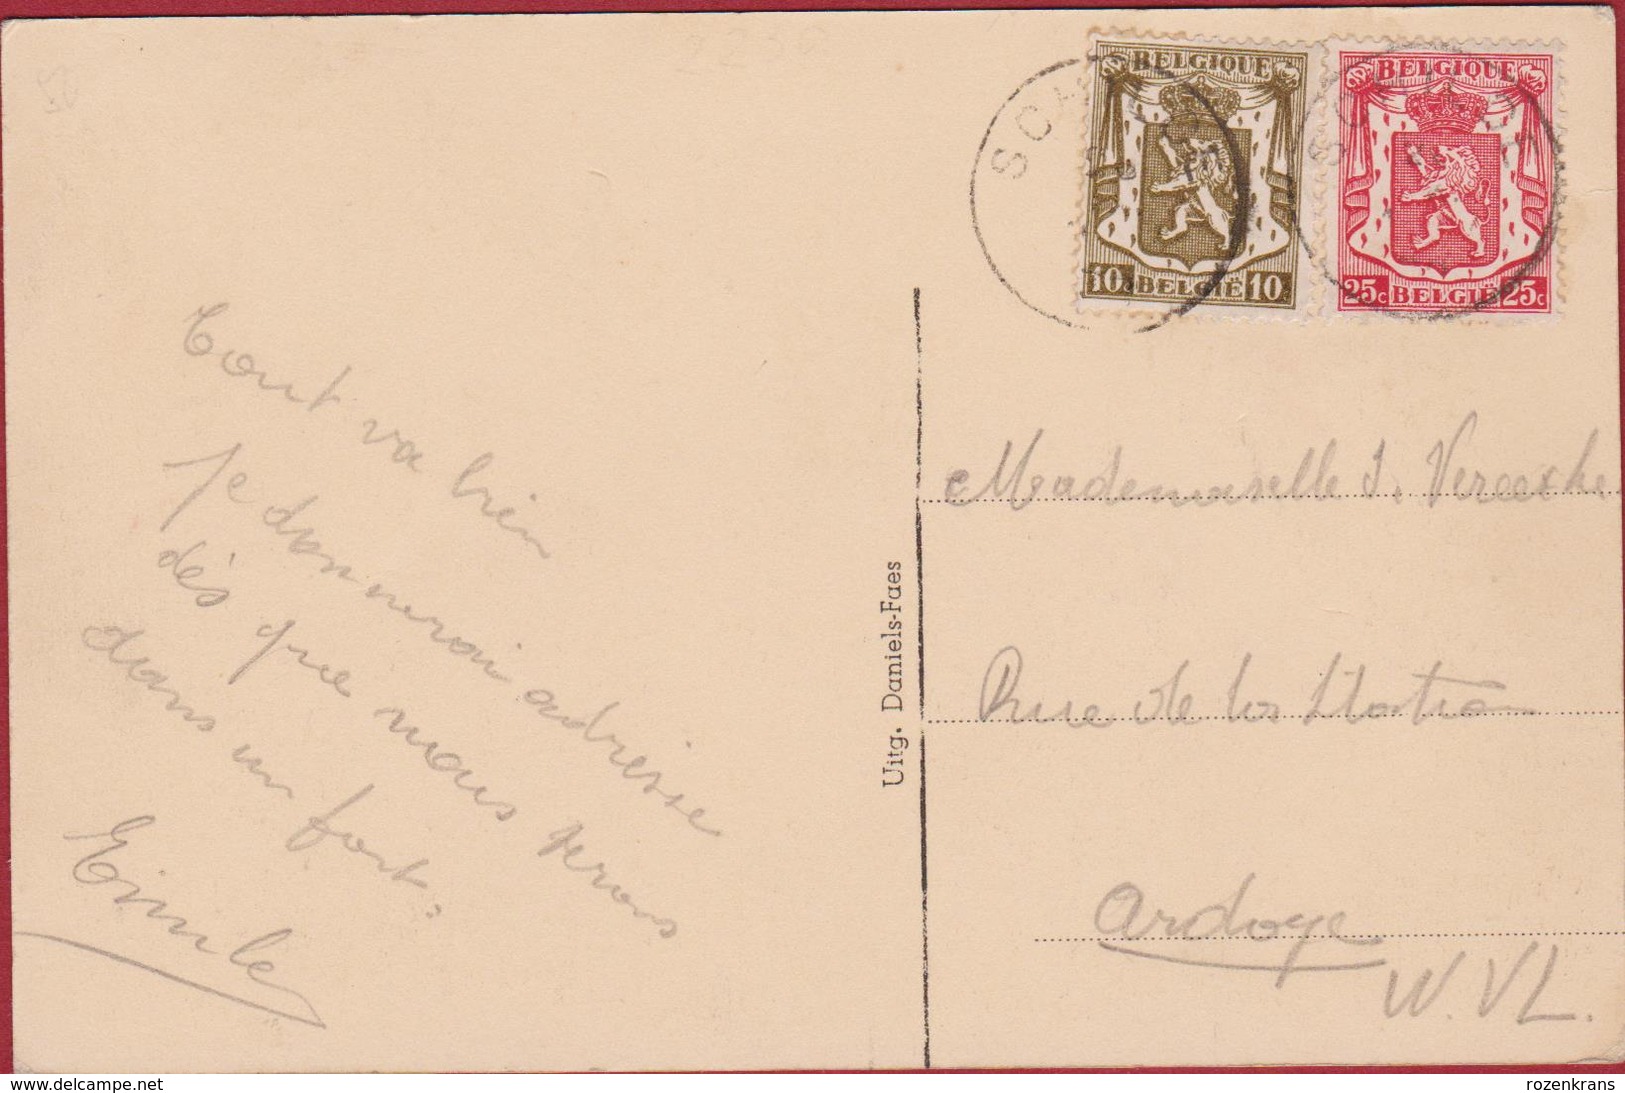 BELGIQUE
10c BELGIË 10
BELGIQUE
25c BELGIË 25c
SCH
Tout va bien
Je donnerai adresse
dès que nous serons
dans un fort.
Emile
Uitg. Daniels-Faes
Mademoiselle J. Vereecke
Rue de la Station
Ardoye
W. VL.
www.delcampe.net
rozenkrans